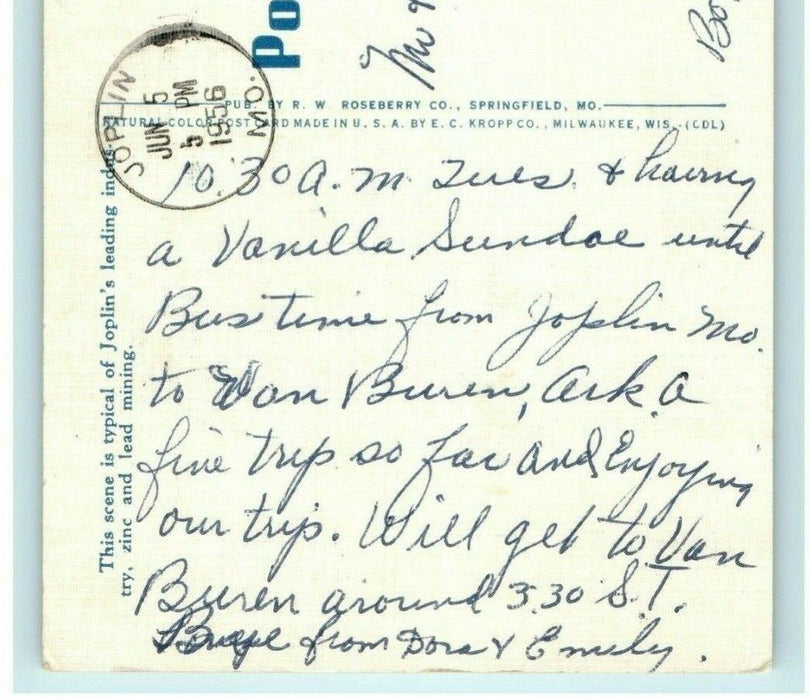 Po
Mo
Bo
JOPLIN
JUN 5
5 PM
1956
MO.
PUB. BY R. W. ROSEBERRY CO., SPRINGFIELD, MO.
NATURAL COLOR POST CARD MADE IN U. S. A. BY E. C. KROPP CO., MILWAUKEE, WIS.-(CDL)
This scene is typical of Joplin's leading indus-
try, zinc and lead mining.
10.30 A.M. Tues. & having
a Vanilla Sundae until
Bus time from Joplin Mo.
to Van Buren, Ark. A
fine trip so far and Enjoying
our trip. Will get to Van
Buren around 3.30 S.T.
from Dora & Emily.